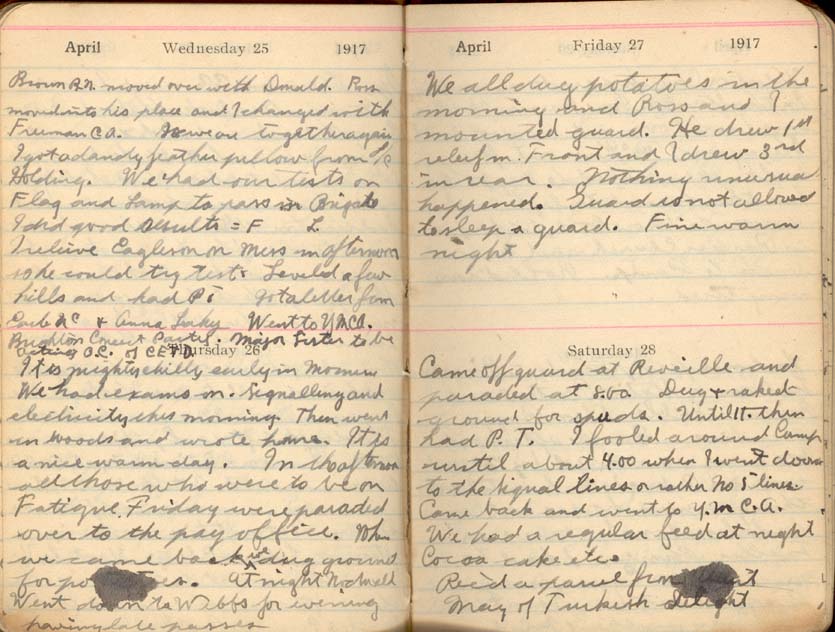 April Wednesday 25 1917
Brown R.N. moved over with Donald. Ross
moved into his place and I changed with
Freeman C A. Now we are together again
I got a dandy feather pillow from
Golding. We had our tests on
Flag and Lamp to pass in Brigade
I did good results = F L
I relieve Eagleson on Mess in afternoon
so he could try tests. Leveled a few
hills and had P T Got a letter from
& Anna Went to Y M C A.
Brighton Concert Party. Major Sister to be
acting O.C. of C E T D.
Thursday 26
It is mighty chilly early in
We had exams on. Signalling and
electricity this morning. Then went
in woods and wrote home. It is
a nice warm day. In the afternoon
all those who were to be on
Fatigue Friday were paraded
over to the pay office. When
we came back we dug ground
for potatoes. At night
Went down to Webbs for evening
having late passes
April Friday 27 1917
We all dug potatoes in the
morning and Ross and I
mounted guard. He drew 1st
relief in Front and I drew 3rd
in rear. Nothing unusual
happened. Guard is not allowed
to sleep a guard. Fine warm
night
Saturday 28
Came off guard at Reveille and
paraded at 8.00 Dug & raked
ground for spuds. Until 11. then
had P. T. I fooled around Camp
until about 4.00 when I went down
to the Signal lines or rather No 5 lines.
Came back and went to Y. M C. A.
We had a regular feed at night
Cocoa cake etc.
Rec'd a parcel from Aunt
May of Turkish Delight